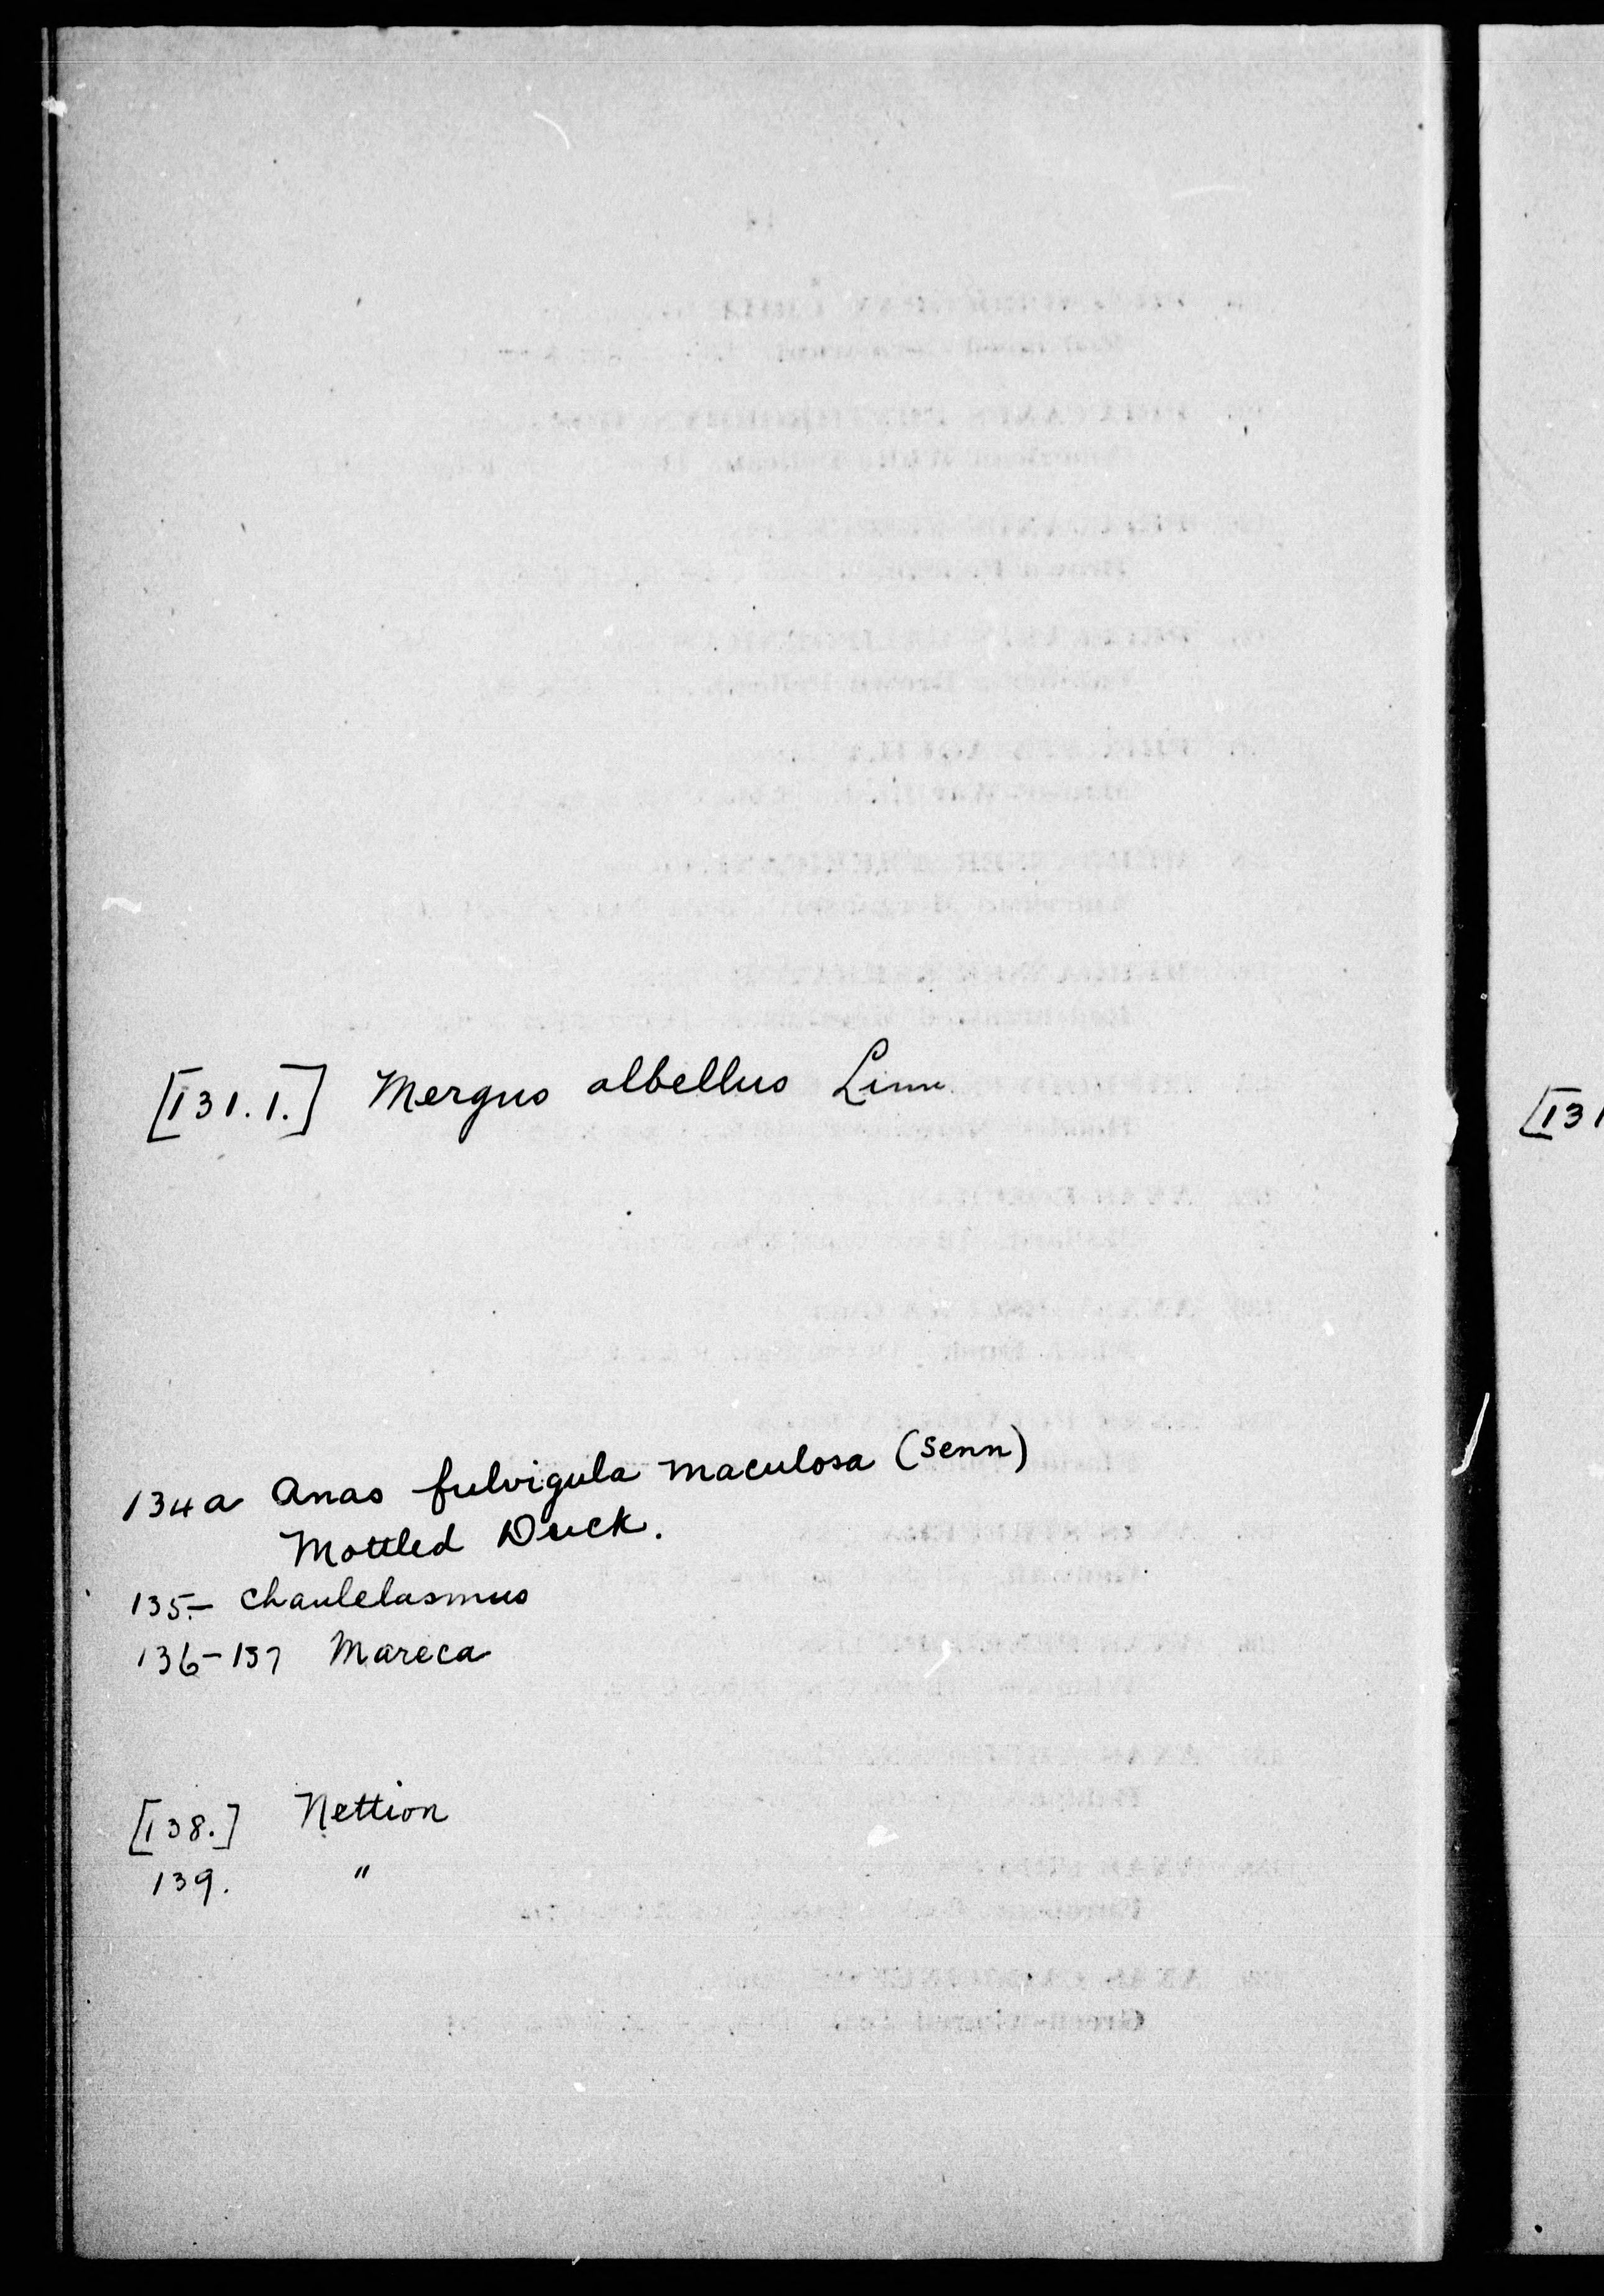 [131.1.] Mergus albellus Linn
134a Anas fulvigula maculosa (Senn)
Mottled Duck.
135.- Chaulelasmus
136-137 Mareca
[138.] Nettion
139. "
[131